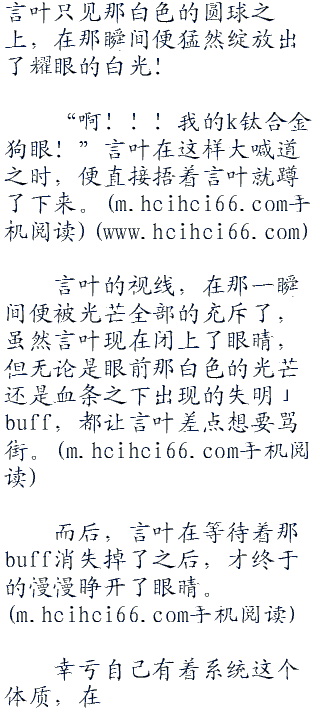 言叶只见那白色的圆球之
上，在那瞬间便猛然绽放出
了耀眼的白光！
“啊！！！我的k钛合金
狗眼！”言叶在这样大喊道
之时，便直接捂着言叶就蹲
了下来。(m.hcihci66.com手
机阅读)(www.hcihci66.com)
言叶的视线，在那一瞬
间便被光芒全部的充斥了，
虽然言叶现在闭上了眼睛，
但无论是眼前那白色的光芒
还是血条之下出现的失明」
buff，都让言叶差点想要骂
街。(m.hcihci66.com手机阅
读)
而后，言叶在等待着那
buff消失掉了之后，才终于
的慢慢睁开了眼睛。
(m.hcihci66.com手机阅读)
幸亏自己有着系统这个
体质，在